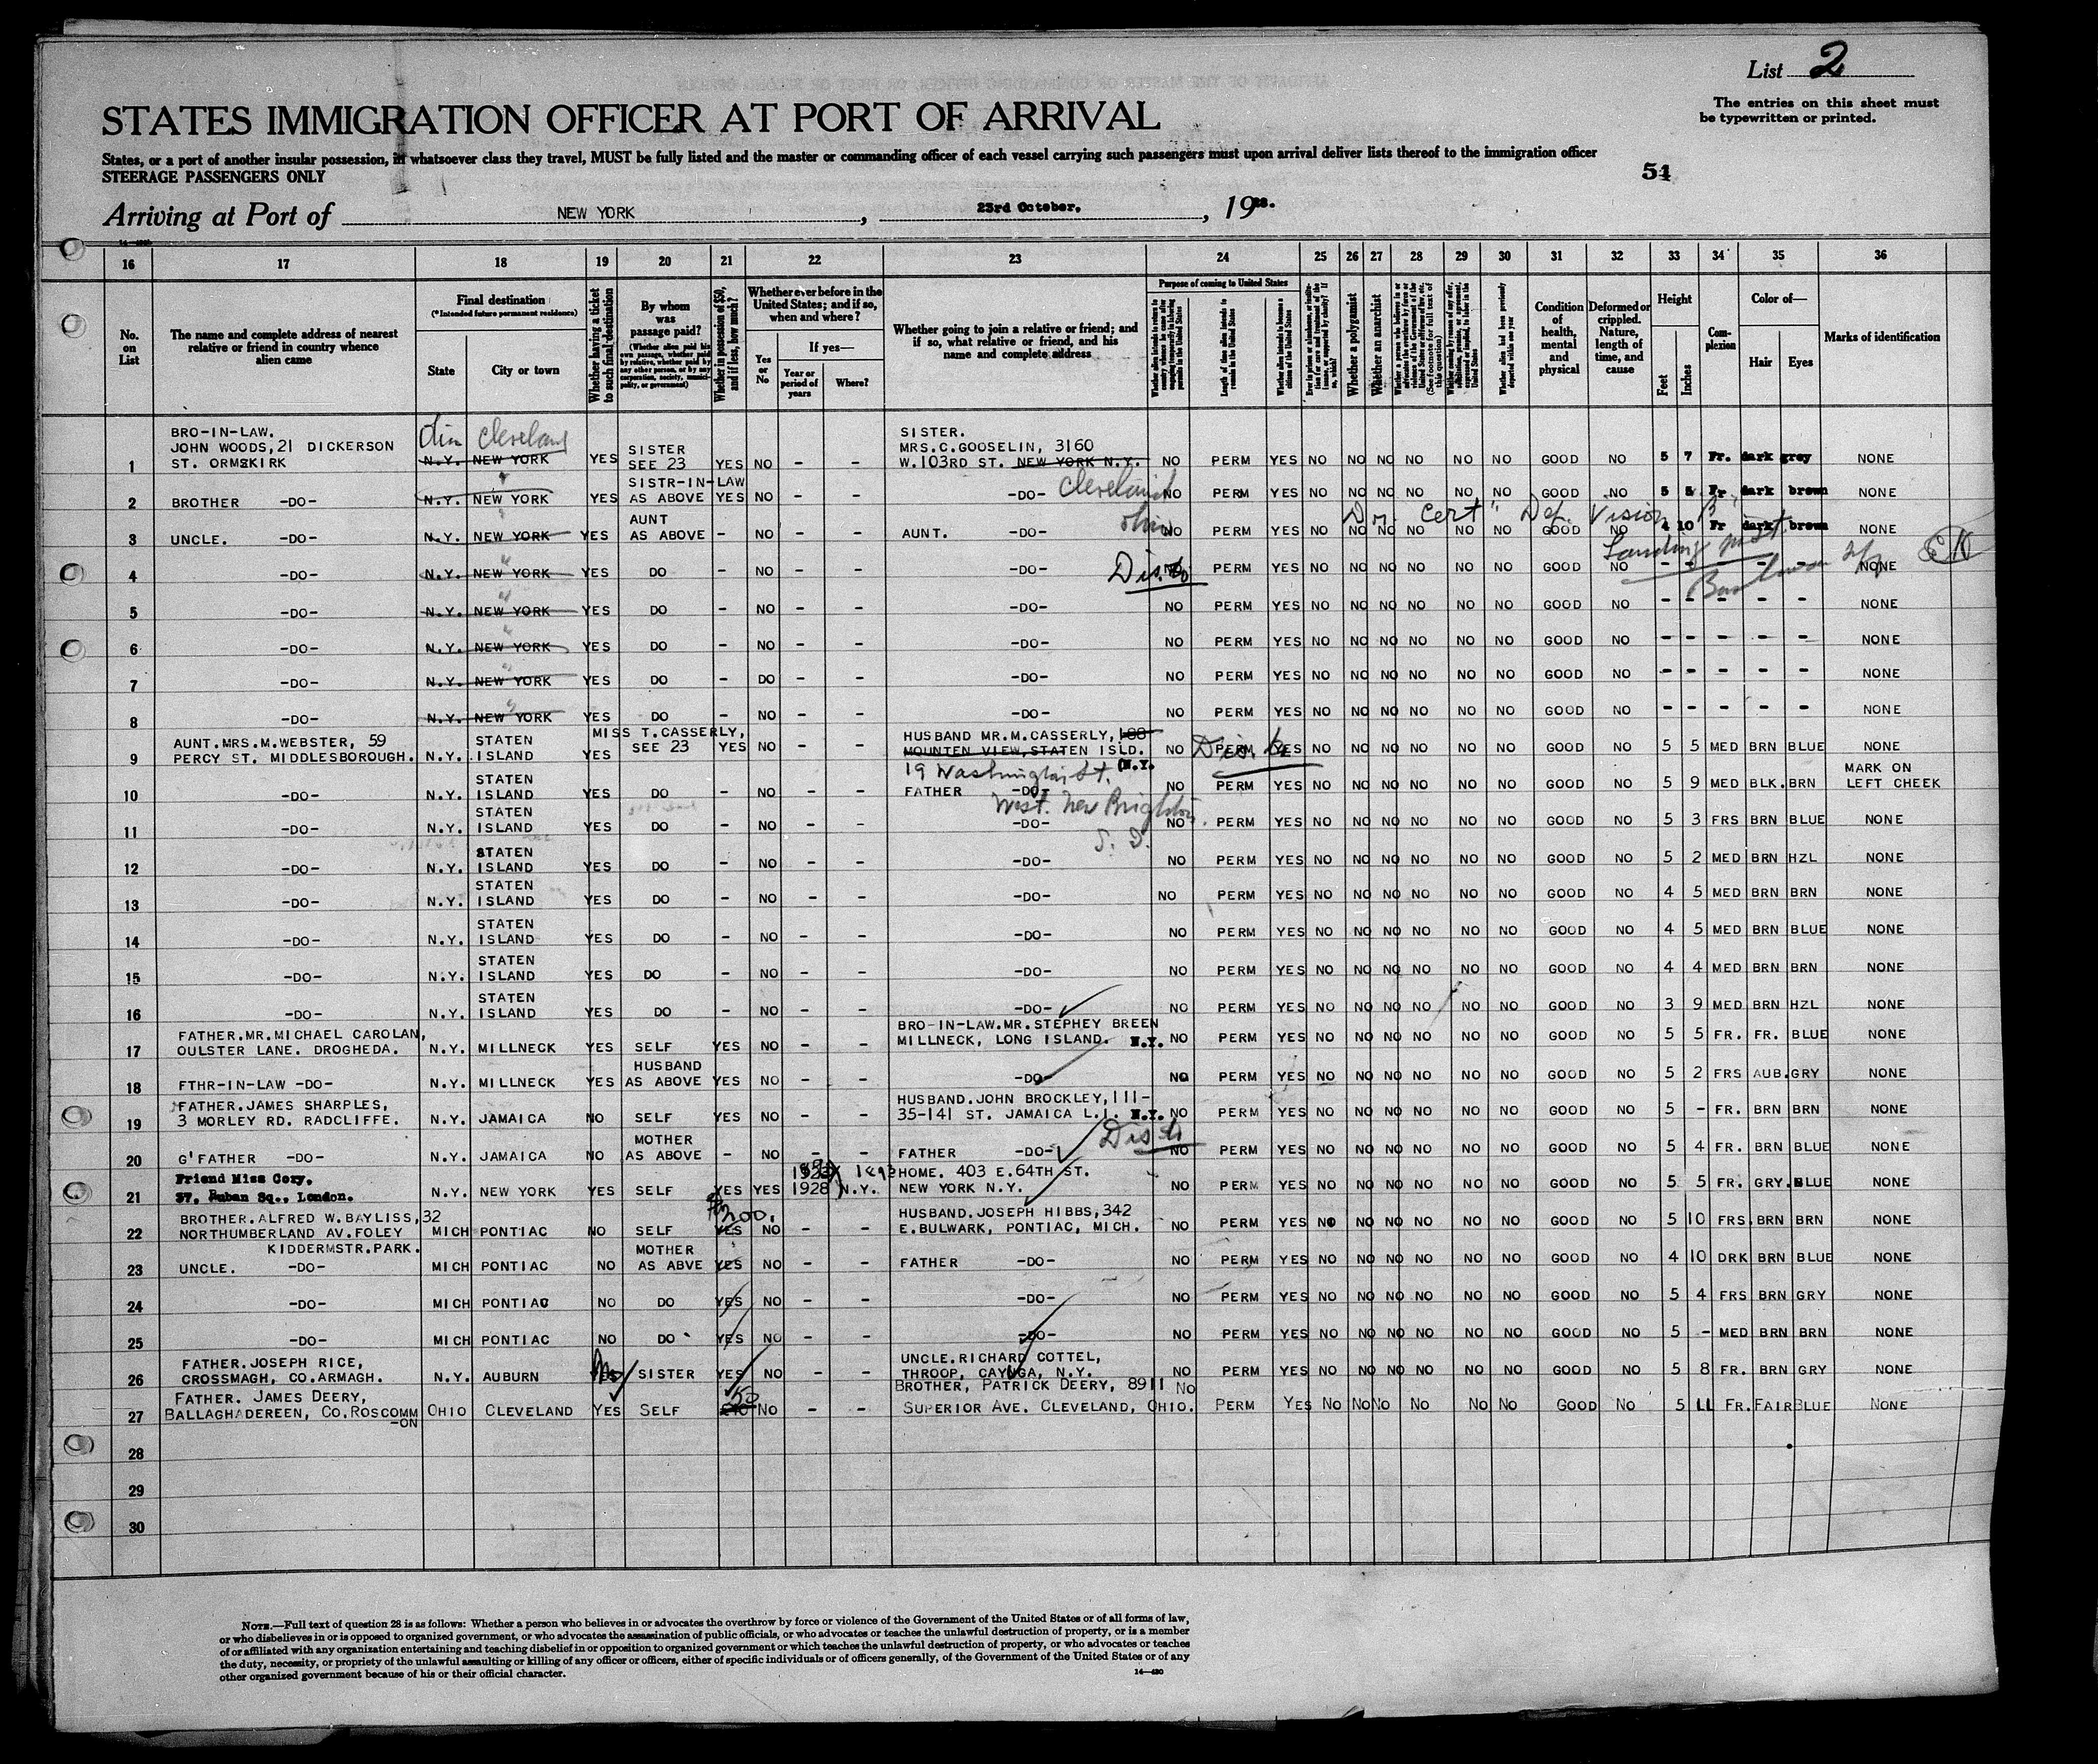 List 2
The entries on this sheet must
be typewritten or printed.
STATES IMMIGRATION OFFICER AT PORT OF ARRIVAL
States, or a port of another insular possession, in whatsoever class they travel, MUST be fully listed and the master or commanding officer of each vessel carrying such passengers must upon arrival deliver lists thereof to the immigration officer
STEERAGE PASSENGERS ONLY
54
Arriving at Port of NEW YORK, 23rd October, 1928.
16 17 18 19 20 21 22 23 24 25 26 27 28 29 30 31 32 33 34 35 36
No. on List
The name and complete address of nearest relative or friend in country whence alien came
Final destination
(*Intended future permanent residence)
State City or town
Whether having a ticket to such final destination
By whom was passage paid?
(Whether alien paid his own passage, whether paid by relative, whether paid by any other person, or by any corporation, society, municipality, or government)
Whether in possession of $50, and if less, how much?
Whether ever before in the United States; and if so, when and where?
Yes or No
If yes—
Year or period of years
Where?
Whether going to join a relative or friend; and if so, what relative or friend, and his name and complete address
Purpose of coming to United States
Whether a polygamist
Whether an anarchist
Condition of health, mental and physical
Deformed or crippled. Nature, length of time, and cause
Height
Feet Inches
Complexion
Color of—
Hair Eyes
Marks of identification
BRO-IN-LAW. Cleveland SISTER.
JOHN WOODS, 21 DICKERSON SISTER MRS.C.GOOSELIN, 3160
1 ST. ORMSKIRK N.Y. NEW YORK YES SEE 23 YES NO - - W.103RD ST. NEW YORK N.Y. NO PERM YES NO NO NO NO NO NO GOOD NO 5 7 Fr. dark grey NONE
SISTR-IN-LAW
2 BROTHER -DO- N.Y. NEW YORK YES AS ABOVE YES NO - - -DO- Cleveland NO PERM YES NO NO NO NO NO NO GOOD NO 5 5 Fr dark brown NONE
AUNT Ohio Cert Def. Vision
3 UNCLE. -DO- N.Y. NEW YORK YES AS ABOVE - NO - - AUNT. -DO- NO PERM YES NO NO NO NO NO NO GOOD NO 4 10 Fr dark brown NONE
Landing
4 -DO- N.Y. NEW YORK YES DO - NO - - -DO- NO PERM YES NO NO NO NO NO NO GOOD NO - - - - - NONE
5 -DO- N.Y. NEW YORK YES DO - NO - - -DO- NO PERM YES NO NO NO NO NO NO GOOD NO - - - - - NONE
6 -DO- N.Y. NEW YORK YES DO - NO - - -DO- NO PERM YES NO NO NO NO NO NO GOOD NO - - - - - NONE
7 -DO- N.Y. NEW YORK YES DO - DO - - -DO- NO PERM YES NO NO NO NO NO NO GOOD NO - - - - - NONE
8 -DO- N.Y. NEW YORK YES DO - NO - - -DO- NO PERM YES NO NO NO NO NO NO GOOD NO - - - - - NONE
AUNT.MRS.M.WEBSTER, 59 STATEN MISS T.CASSERLY, HUSBAND MR.M.CASSERLY, 188
9 PERCY ST. MIDDLESBOROUGH. N.Y. ISLAND YES SEE 23 YES NO - - MOUNTEN VIEW, STATEN ISLD. NO PERM YES NO NO NO NO NO NO GOOD NO 5 5 MED BRN BLUE NONE
19 Washington St. (N.Y.
STATEN MARK ON
10 -DO- N.Y. ISLAND YES DO - NO - - FATHER -DO- NO PERM YES NO NO NO NO NO NO GOOD NO 5 9 MED BLK. BRN LEFT CHEEK
West New Brighton
STATEN
11 -DO- N.Y. ISLAND YES DO - NO - - -DO- NO PERM YES NO NO NO NO NO NO GOOD NO 5 3 FRS BRN BLUE NONE
S. I.
STATEN
12 -DO- N.Y. ISLAND YES DO - NO - - -DO- NO PERM YES NO NO NO NO NO NO GOOD NO 5 2 MED BRN HZL NONE
STATEN
13 -DO- N.Y. ISLAND YES DO - NO - - -DO- NO PERM YES NO NO NO NO NO NO GOOD NO 4 5 MED BRN BRN NONE
STATEN
14 -DO- N.Y. ISLAND YES DO - NO - - -DO- NO PERM YES NO NO NO NO NO NO GOOD NO 4 5 MED BRN BLUE NONE
STATEN
15 -DO- N.Y. ISLAND YES DO - NO - - -DO- NO PERM YES NO NO NO NO NO NO GOOD NO 4 4 MED BRN BRN NONE
STATEN
16 -DO- N.Y. ISLAND YES DO - NO - - -DO- NO PERM YES NO NO NO NO NO NO GOOD NO 3 9 MED BRN HZL NONE
FATHER.MR.MICHAEL CAROLAN, BRO-IN-LAW.MR.STEPHEY BREEN
17 OULSTER LANE. DROGHEDA. N.Y. MILLNECK YES SELF YES NO - - MILLNECK, LONG ISLAND. N.Y. NO PERM YES NO NO NO NO NO NO GOOD NO 5 5 FR. FR. BLUE NONE
HUSBAND
18 FTHR-IN-LAW -DO- N.Y. MILLNECK YES AS ABOVE YES NO - - -DO- NO PERM YES NO NO NO NO NO NO GOOD NO 5 2 FRS AUB. GRY NONE
FATHER.JAMES SHARPLES, HUSBAND.JOHN BROCKLEY, 111-
19 3 MORLEY RD. RADCLIFFE. N.Y. JAMAICA NO SELF YES NO - - 35-141 ST. JAMAICA L.I. N.Y. NO PERM YES NO NO NO NO NO NO GOOD NO 5 - FR. BRN BRN NONE
MOTHER
20 G'FATHER -DO- N.Y. JAMAICA NO AS ABOVE - NO - - FATHER -DO- NO PERM YES NO NO NO NO NO NO GOOD NO 5 4 FR. BRN BLUE NONE
Friend Miss Cory. HOME. 403 E.64TH ST.
21 37, Ruban Sq., London. N.Y. NEW YORK YES SELF YES YES 1928 N.Y. NEW YORK N.Y. NO PERM YES NO NO NO NO NO NO GOOD NO 5 5 FR. GRY. BLUE NONE
BROTHER.ALFRED W.BAYLISS, 32 $200. HUSBAND.JOSEPH HIBBS, 342
22 NORTHUMBERLAND AV.FOLEY MICH PONTIAC NO SELF YES NO - - E.BULWARK, PONTIAC, MICH. NO PERM YES NO NO NO NO NO NO GOOD NO 5 10 FRS. BRN BRN NONE
KIDDERMSTR.PARK. MOTHER
23 UNCLE. -DO- MICH PONTIAC NO AS ABVE YES NO - - FATHER -DO- NO PERM YES NO NO NO NO NO NO GOOD NO 4 10 DRK BRN BLUE NONE
24 -DO- MICH PONTIAC NO DO YES NO - - -DO- NO PERM YES NO NO NO NO NO NO GOOD NO 5 4 FRS BRN GRY NONE
25 -DO- MICH PONTIAC NO DO YES NO - - -DO- NO PERM YES NO NO NO NO NO NO GOOD NO 5 - MED BRN BRN NONE
FATHER.JOSEPH RICE, UNCLE.RICHARD COTTEL,
26 CROSSMAGH, CO.ARMAGH. N.Y. AUBURN No SISTER YES NO - - THROOP, CAYUGA, N.Y. NO PERM YES NO NO NO NO NO NO GOOD NO 5 8 FR. BRN GRY NONE
FATHER. JAMES DEERY, 50 BROTHER, PATRICK DEERY, 8911
27 BALLAGHADEREEN, CO.ROSCOMM-ON OHIO CLEVELAND YES SELF NO - - SUPERIOR AVE. CLEVELAND, OHIO. NO PERM YES NO NO NO NO NO NO GOOD NO 5 11 FR. FAIR BLUE NONE
28
29
30
NOTE.—Full text of question 28 is as follows: Whether a person who believes in or advocates the overthrow by force or violence of the Government of the United States or of all forms of law,
or who disbelieves in or is opposed to organized government, or who advocates the assassination of public officials, or who advocates or teaches the unlawful destruction of property, or is a member
of or affiliated with any organization entertaining and teaching disbelief in or opposition to organized government or which teaches the unlawful destruction of property, or who advocates or teaches
the duty, necessity, or propriety of the unlawful assaulting or killing of any officer or officers, either of specific individuals or of officers generally, of the Government of the United States or of any
other organized government because of his or their official character.
14—430